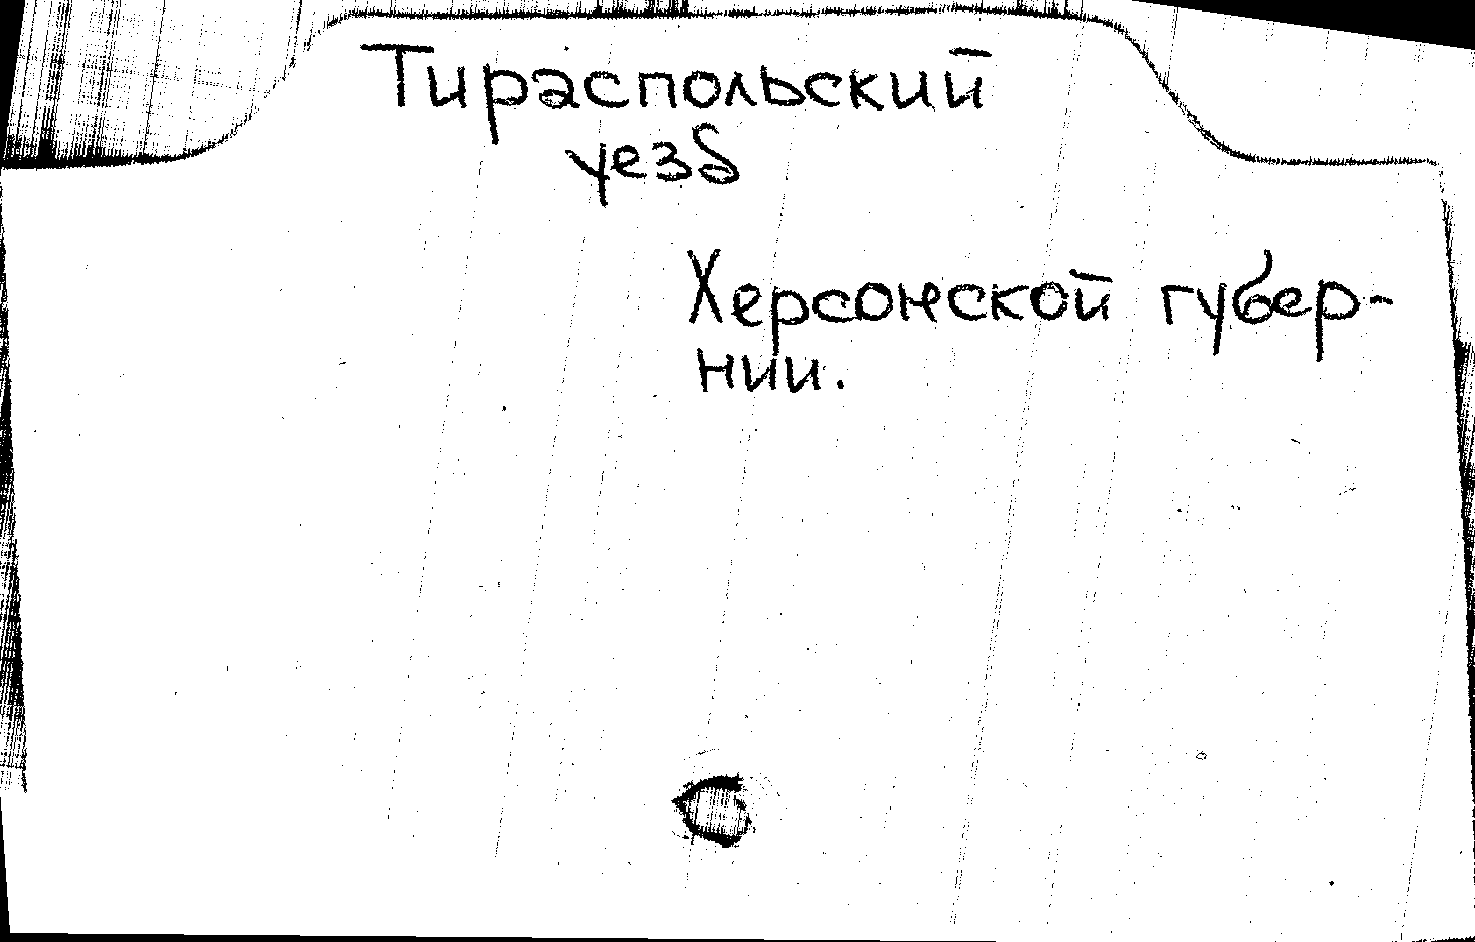 Тираспольский
уезд
Херсонской губер-
нии.